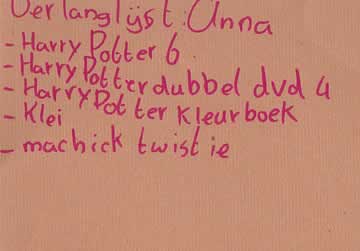 Verlanglijst: Anna
- Harry Potter 6
- Harry Potter dubbel dvd 4
- Harry Potter Kleurboek
- Klei
- machick twist ie